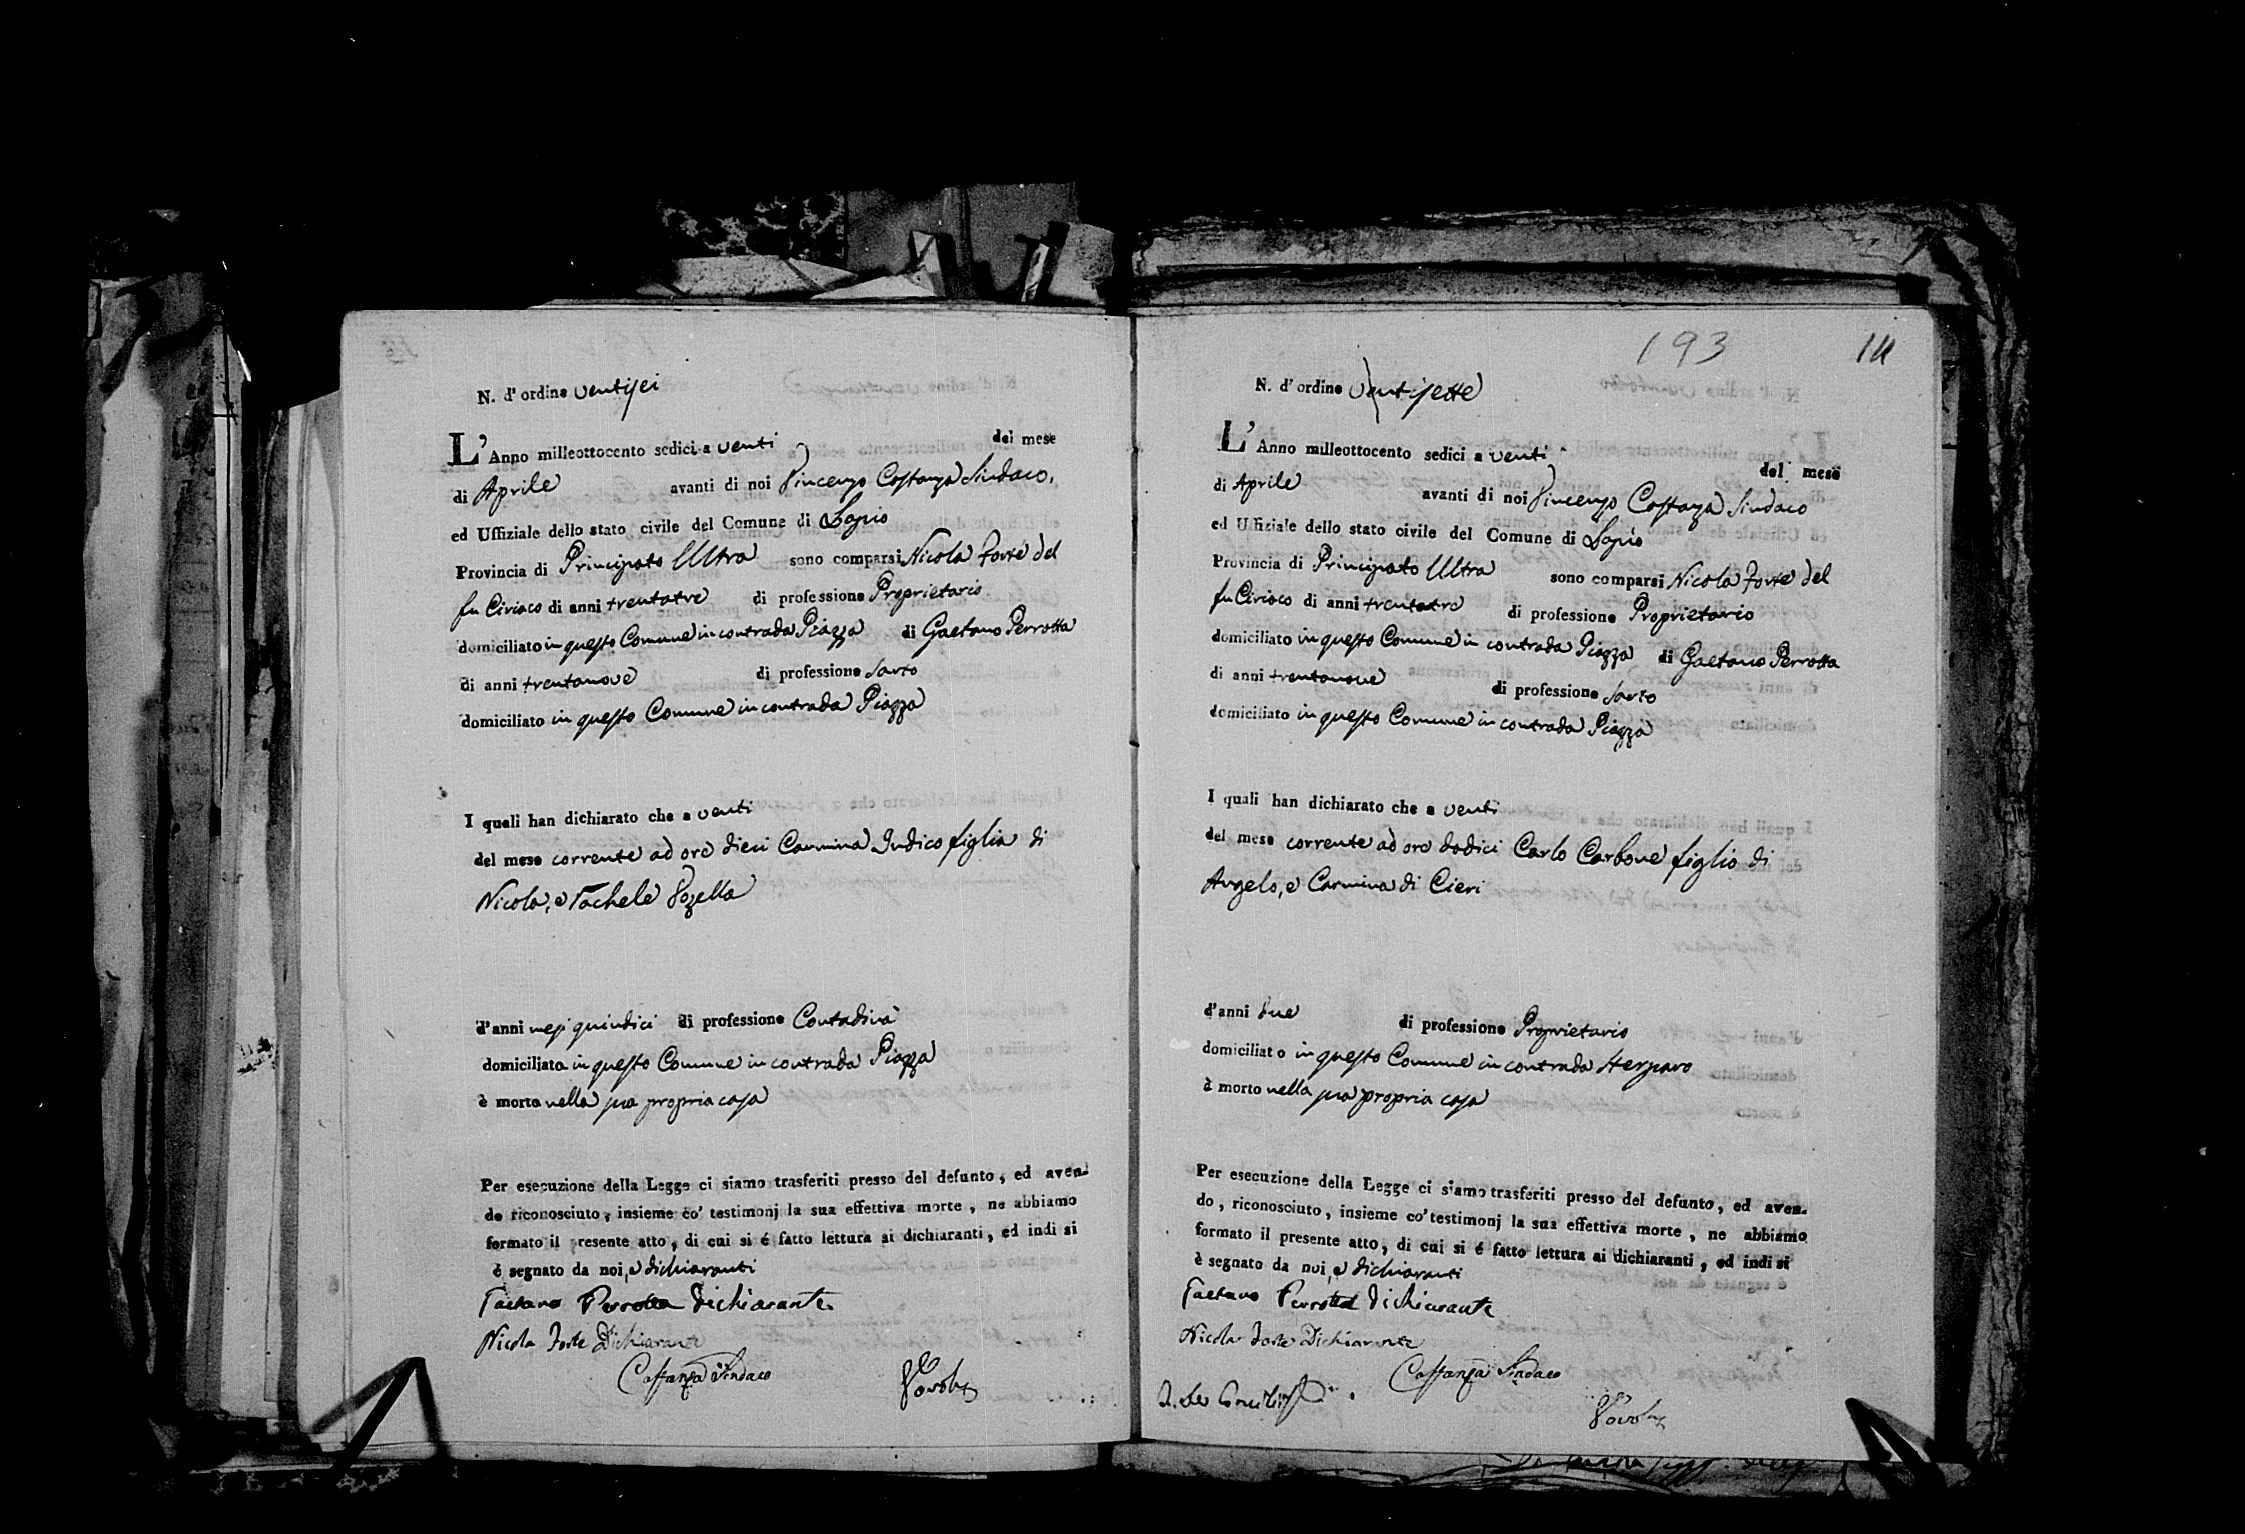 N. d'ordine ventisei
L'Anno milleottocento sedici a venti del mese
di Aprile avanti di noi Vincenzo Costanza Sindaco,
ed Uffiziale dello stato civile del Comune di Lapio
Provincia di Principato Ultra sono comparsi Nicola Forte del
fu Ciriaco di anni trentatre di professione Proprietario
domiciliato in questo Comune in contrada Piazza di Gaetano Perrotta
di anni trentanove di professione Sarto
domiciliato in questo Comune in contrada Piazza
I quali han dichiarato che a venti
del mese corrente ad ore dieci Carmina Iudico figlia di
Nicola, e Rachele
d'anni mesi quindici di professione Contadina
domiciliata in questo Comune in contrada Piazza
è morta nella sua propria casa
Per esecuzione della Legge ci siamo trasferiti presso del defunto, ed aven-
do riconosciuto, insieme co' testimonj la sua effettiva morte, ne abbiamo
formato il presente atto, di cui si é fatto lettura ai dichiaranti, ed indi si
è segnato da noi, e dichiaranti
Gaetano Perrotta Dichiarante
Nicola Forte Dichiarante
Costanza Sindaco
193
N. d'ordine ventisette
L'Anno milleottocento sedici a venti del mese
di Aprile avanti di noi Vincenzo Costanza Sindaco
ed Uffiziale dello stato civile del Comune di Lapio
Provincia di Principato Ultra sono comparsi Nicola Forte del
fu Ciriaco di anni trentatre di professione Proprietario
domiciliato in questo Comune in contrada Piazza di Gaetano Perrotta
di anni trentanove di professione Sarto
domiciliato in questo Comune in contrada Piazza
I quali han dichiarato che a venti
del mese corrente ad ore dodici Carlo Carbone figlio di
Angelo, e Carmina di Cieri
d'anni due di professione Proprietario
domiciliato in questo Comune in contrada
è morto nella sua propria casa
Per esecuzione della Legge ci siamo trasferiti presso del defunto, ed aven-
do, riconosciuto, insieme co' testimonj la sua effettiva morte, ne abbiamo
formato il presente atto, di cui si é fatto lettura ai dichiaranti, ed indi si
è segnato da noi, e dichiaranti
Gaetano Perrotta Dichiarante
Nicola Forte Dichiarante
Costanza Sindaco